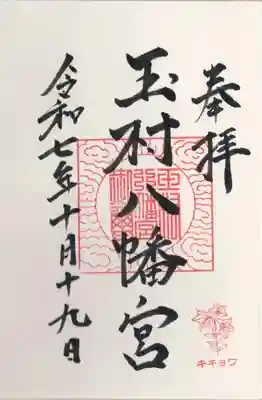 奉拝
玉村八幡宮
令和七年十月十九日
キキョウ